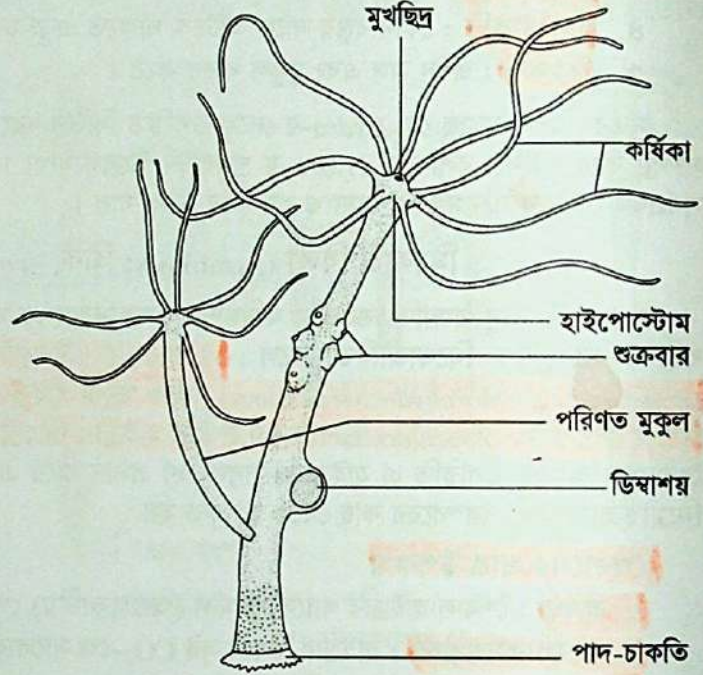 মুখছিদ্র
কর্ষিকা
হাইপোস্টোম
শুক্রবার
পরিণত মুকুল
ডিম্বাশয়
পাদ-চাকতি